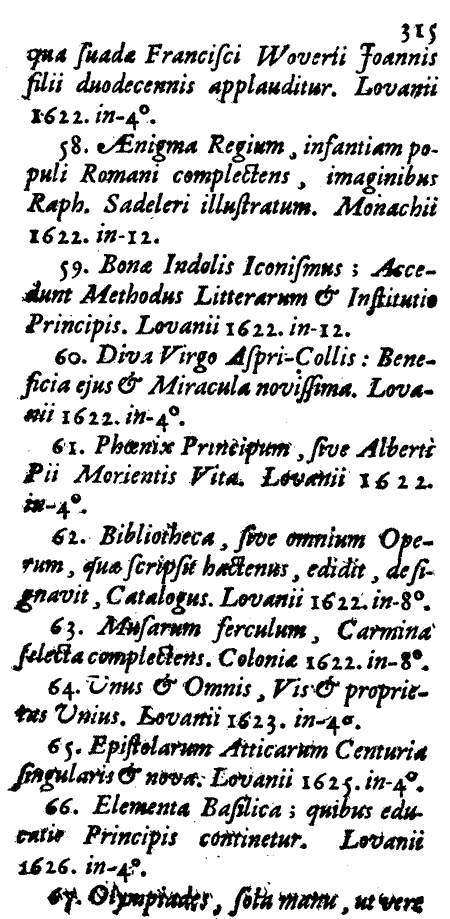 315
qua ſuadæ Franciſci Woverii Joannis
filii duodecennis applauditur. Lovanii
1622. in-4°.
58. Ænigma Regium, infantiam po-
puli Romani complectens, imaginibus
Raph. Sadeleri illuſtratum. Monachii
1622. in-12.
59. Bonæ Indolis Iconiſmus; Acce-
dunt Methodus Litterarum & Inſtitutio
Principis. Lovanii 1622. in-12.
60. Diva Virgo Aſpri-Collis: Bene-
ficia ejus & Miracula noviſſima. Lova-
nii 1622. in-4°.
61. Phœnix Principum, ſive Alberti
Pii Morientis Vita. Lovanii 1622.
in-4°.
62. Bibliotheca, ſive omnium Ope-
rum, quæ ſcripſit hactenus, edidit, deſi-
gnavit, Catalogus. Lovanii 1622. in-8°.
63. Muſarum ferculum, Carmina
ſelecta complectens. Coloniæ 1622. in-8°.
64. Unus & Omnis, Vis & proprie-
tas Unius. Lovanii 1623. in-4°.
65. Epiſtolarum Atticarum Centuria
ſingularis & nova. Lovanii 1625. in-4°.
66. Elementa Baſilica; quibus edu-
catio Principis continetur. Lovanii
1626. in-4°.
67. Olympiades, ſola manu, ut vere